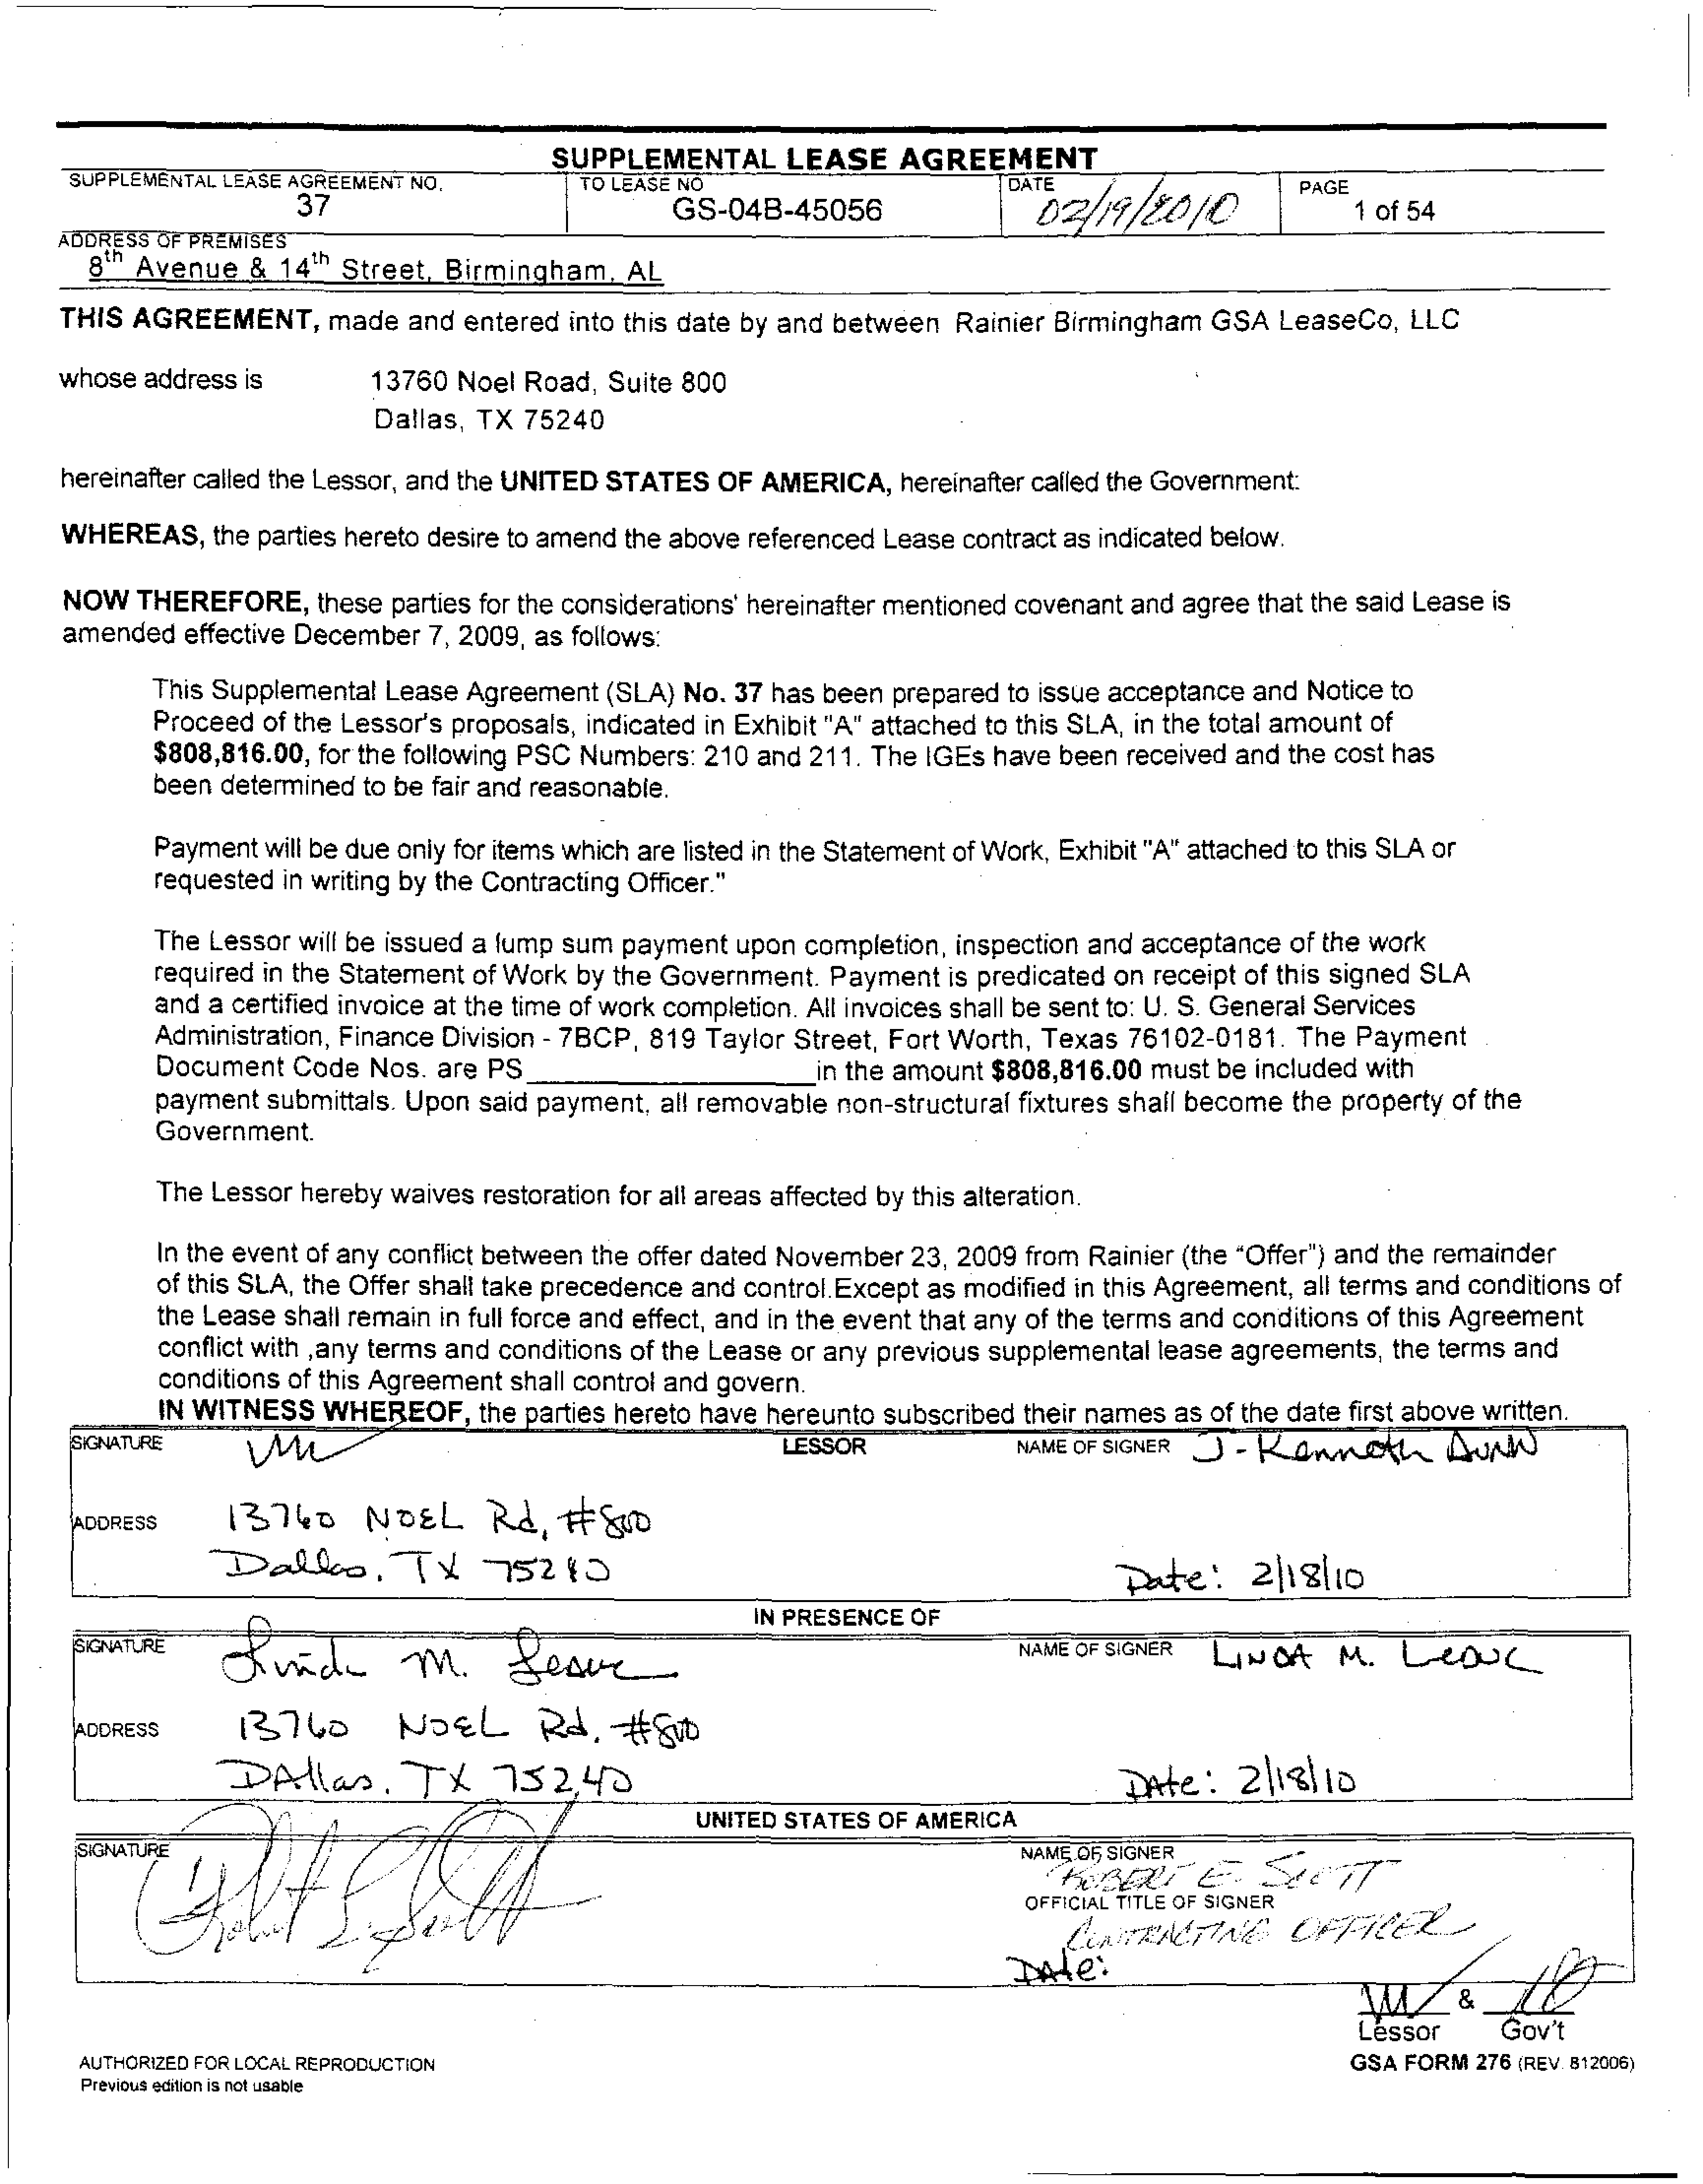 SUPPLEMENTAL LEASE AGREEMENT
SUPPLEMENTAL LEASE AGREEMENT NO.
37
TO LEASE NO
GS-04B-45056
DATE
02/19/2010
PAGE
1 of 54
ADDRESS OF PREMISES
8th Avenue & 14th Street, Birmingham, AL
THIS AGREEMENT, made and entered into this date by and between Rainier Birmingham GSA LeaseCo, LLC
whose address is 13760 Noel Road, Suite 800
Dallas, TX 75240
hereinafter called the Lessor, and the UNITED STATES OF AMERICA, hereinafter called the Government:
WHEREAS, the parties hereto desire to amend the above referenced Lease contract as indicated below.
NOW THEREFORE, these parties for the considerations' hereinafter mentioned covenant and agree that the said Lease is
amended effective December 7, 2009, as follows:
This Supplemental Lease Agreement (SLA) No. 37 has been prepared to issue acceptance and Notice to
Proceed of the Lessor's proposals, indicated in Exhibit "A" attached to this SLA, in the total amount of
$808,816.00, for the following PSC Numbers: 210 and 211. The IGEs have been received and the cost has
been determined to be fair and reasonable.
Payment will be due only for items which are listed in the Statement of Work, Exhibit "A" attached to this SLA or
requested in writing by the Contracting Officer."
The Lessor will be issued a lump sum payment upon completion, inspection and acceptance of the work
required in the Statement of Work by the Government. Payment is predicated on receipt of this signed SLA
and a certified invoice at the time of work completion. All invoices shall be sent to: U. S. General Services
Administration, Finance Division - 7BCP, 819 Taylor Street, Fort Worth, Texas 76102-0181. The Payment
Document Code Nos. are PS____________________in the amount $808,816.00 must be included with
payment submittals. Upon said payment, all removable non-structural fixtures shall become the property of the
Government.
The Lessor hereby waives restoration for all areas affected by this alteration.
In the event of any conflict between the offer dated November 23, 2009 from Rainier (the "Offer") and the remainder
of this SLA, the Offer shall take precedence and control.Except as modified in this Agreement, all terms and conditions of
the Lease shall remain in full force and effect, and in the event that any of the terms and conditions of this Agreement
conflict with ,any terms and conditions of the Lease or any previous supplemental lease agreements, the terms and
conditions of this Agreement shall control and govern.
IN WITNESS WHEREOF, the parties hereto have hereunto subscribed their names as of the date first above written.
SIGNATURE
LESSOR
NAME OF SIGNER J-Kenneth Dunn
ADDRESS
13760 NOEL Rd, #800
Dallas, TX 75240
Date: 2/18/10
IN PRESENCE OF
SIGNATURE Linda M. Leduc
NAME OF SIGNER LINDA M. LeDUC
ADDRESS
13760 NOEL Rd. #800
DAllas, TX 75240
DAte: 2/18/10
UNITED STATES OF AMERICA
SIGNATURE
NAME OF SIGNER
ROBERT E. SCOTT
OFFICIAL TITLE OF SIGNER
CONTRACTING OFFICER
DAte:
&
Lessor Gov't
AUTHORIZED FOR LOCAL REPRODUCTION
Previous edition is not usable
GSA FORM 276 (REV. 812006)